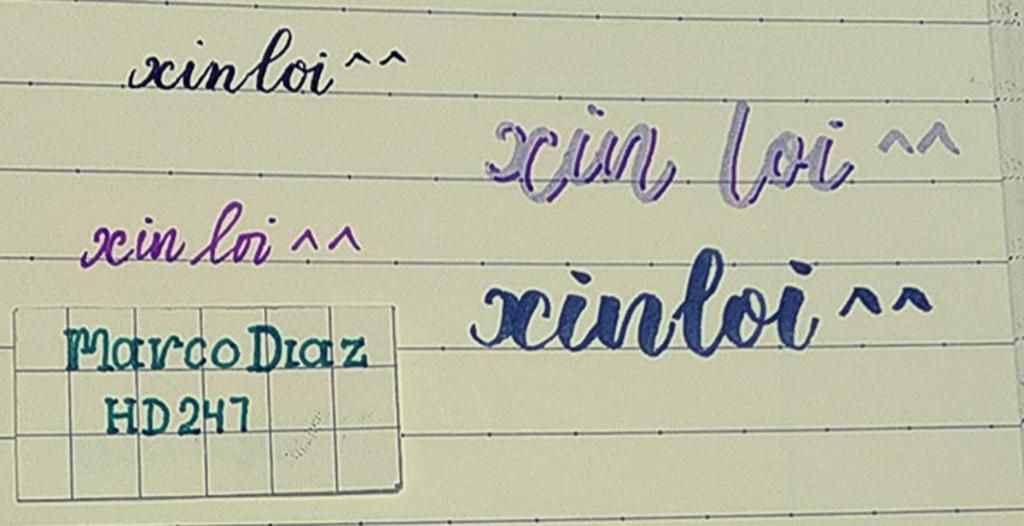 xinloi ^^
xin loi ^^
xin loi ^^
xinloi ^^
Marco Diaz
HD247